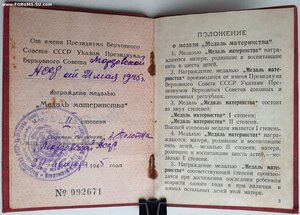 FORUMS-SU.com
От имени Президиума Верховного
Совета СССР Указом Президиума
Верховного Совета Мордовской
АССР от 21 мая 1945 г.
награждена медалью
„Медаль материнства"
II степени
Мордовской АССР
1945 года
№ 092671
ПОЛОЖЕНИЕ
о медали „Медаль материнства"
1. Медалью „Медаль материнства"
награждаются матери, родившие и воспитав-
шие пять и шесть детей.
2. Награждение медалью „Медаль мате-
ринства" производится от имени Президиума
Верховного Совета СССР Указами Прези-
диумов Верховных Советов союзных и
автономных республик.
3. Медаль „Медаль материнства" состоит
из двух степеней:
„Медаль материнства" I степени;
„Медаль материнства" II степени.
Высшей степенью медали является I степень.
4. Медалью „Медаль материнства" на-
граждаются: матери, родившие и воспи-
тавшие пять детей, — медалью II степени;
матери, родившие и воспитавшие шесть детей, —
медалью I степени.
5. Награждение медалью „Медаль мате-
ринства" соответствующей степени произ-
водится по достижении последним ребенком
возраста одного года и при наличии в
живых остальных детей этой матери.
3